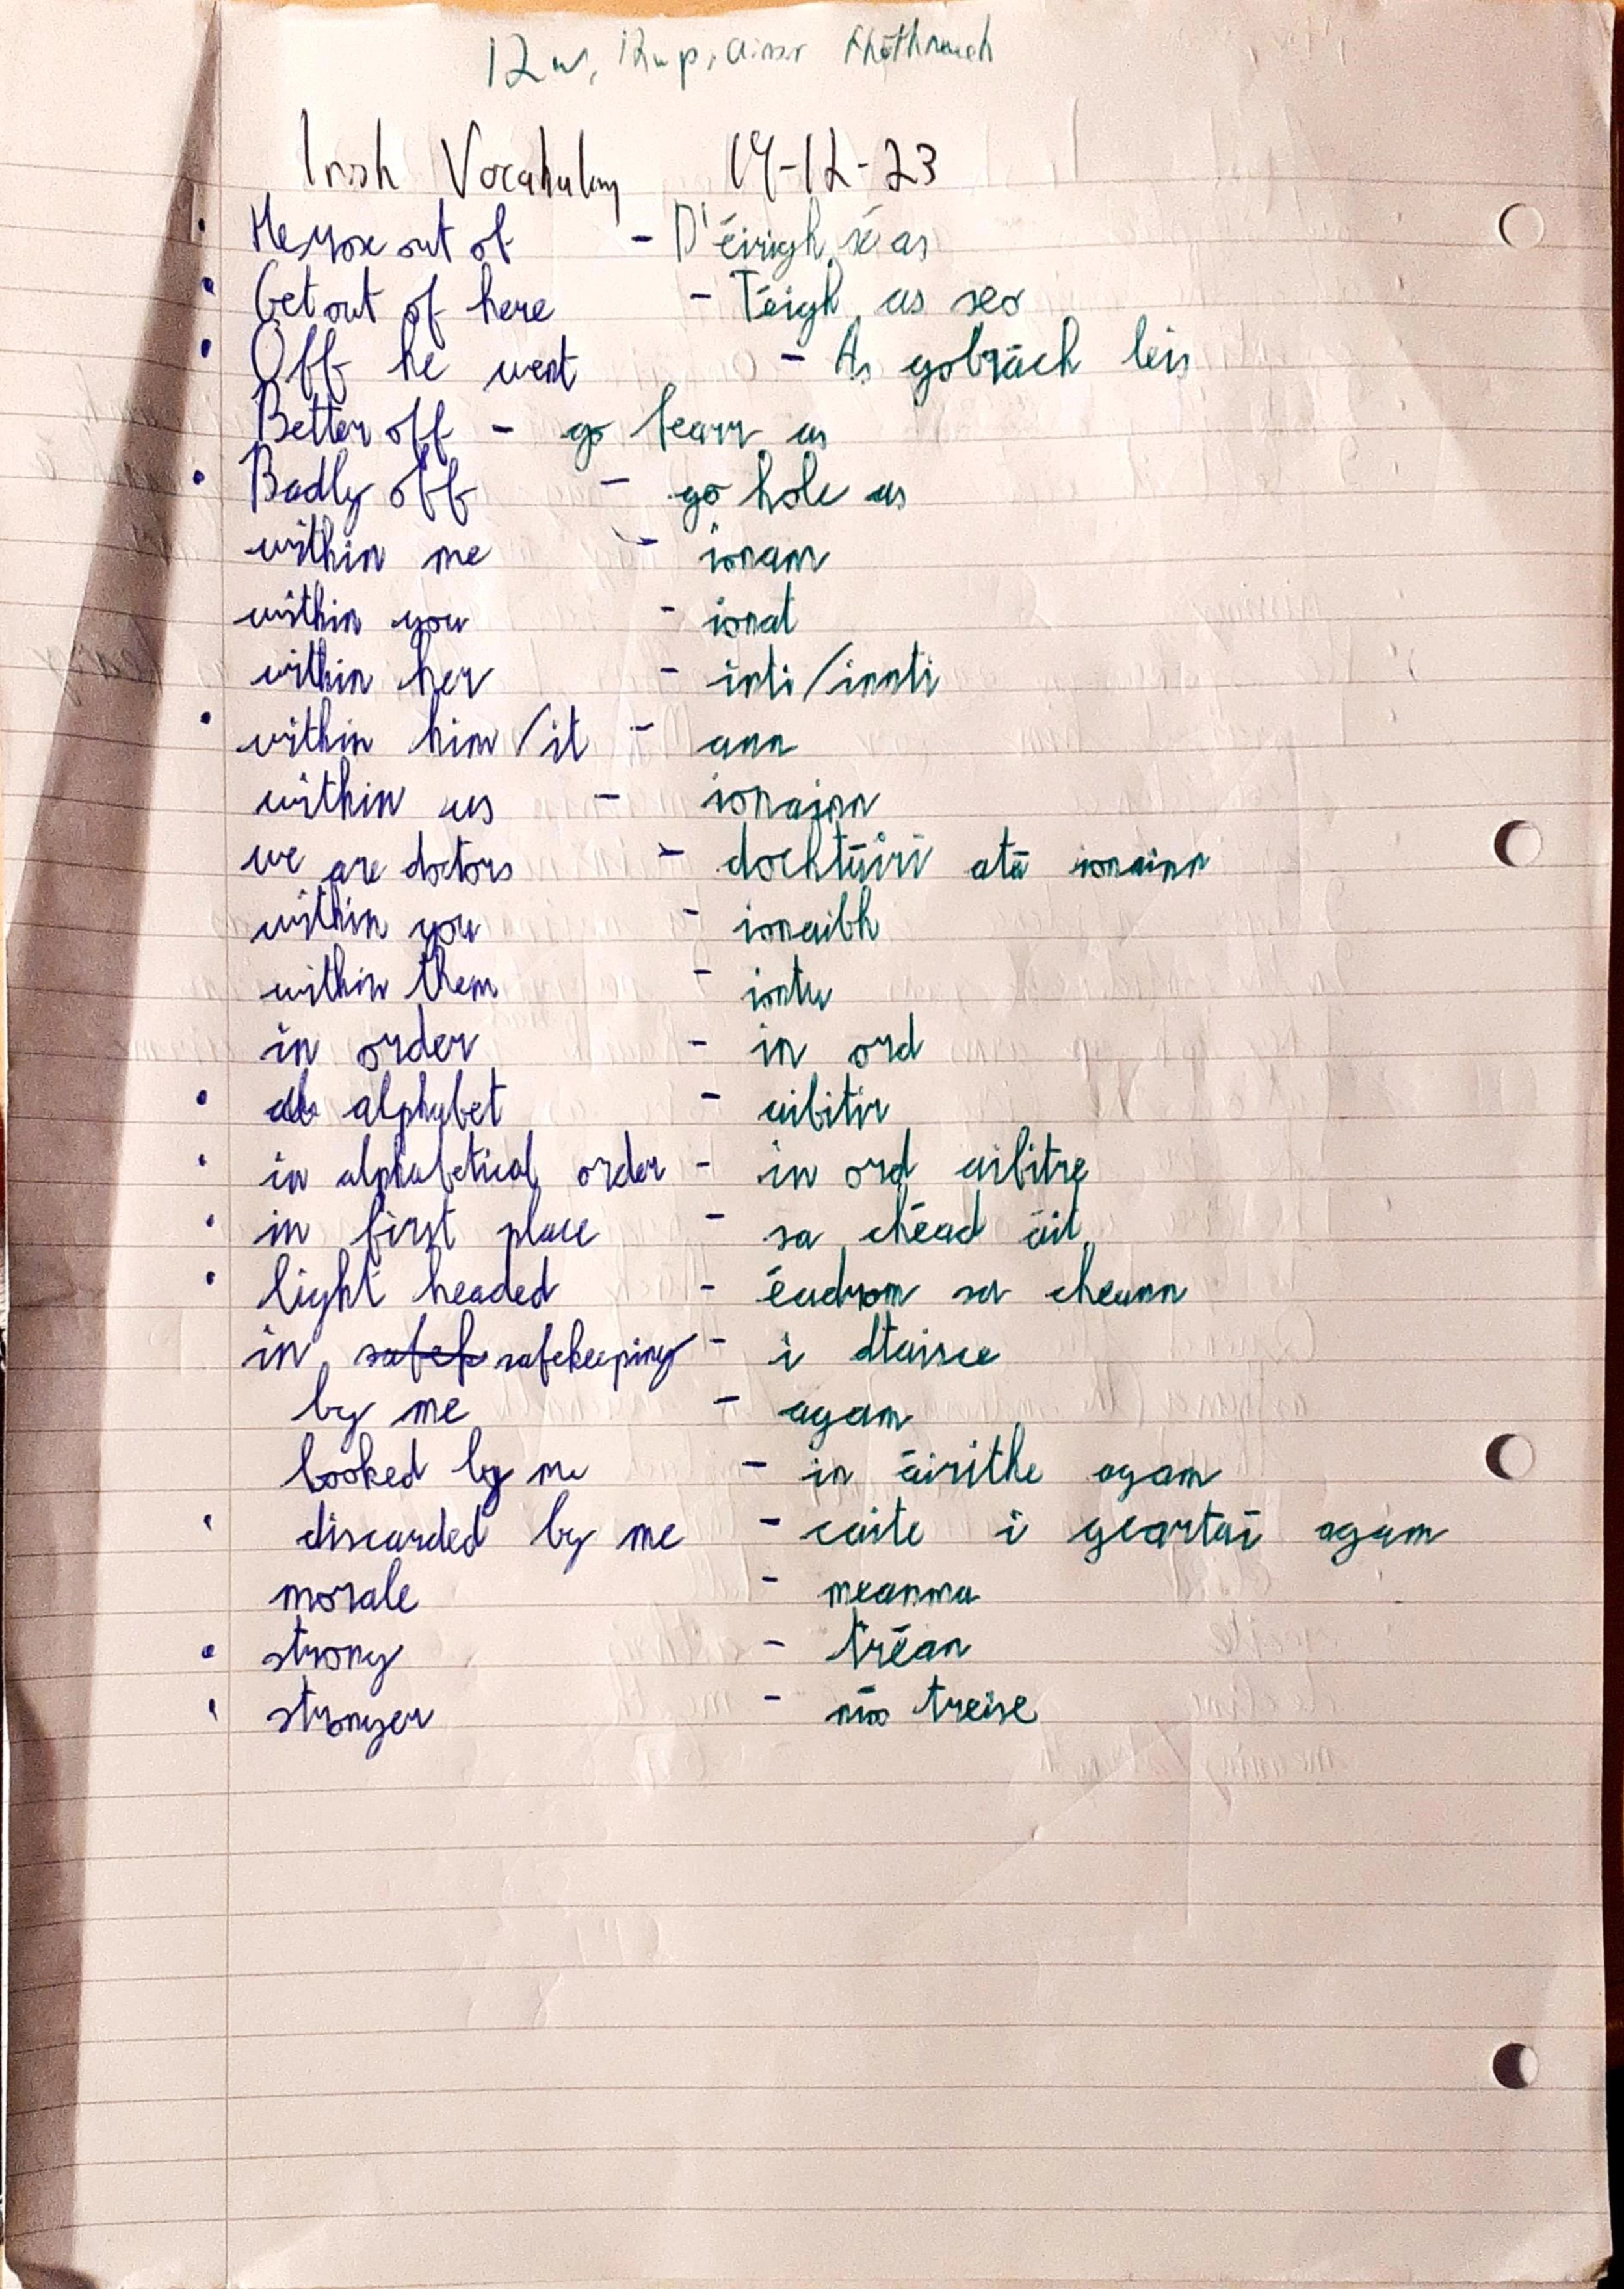 Irish Vocabulary 14-12-23
He rose out of - D'éirigh sé as
Get out of here - Téigh as seo
Off he went - As go brách leis
Better off - go fearr as
Badly off - go holc as
within me - ionam
within you - ionat
within her - inti/innti
within him/it - ann
within us - ionainn
we are doctors - dochtúirí atá ionainn
within you - ionaibh
within them - iontu
in order - in ord
alphabet - aibitir
in alphabetical order - in ord aibitre
in first place - sa chéad áit
light headed - éadrom sa cheann
in safek safekeeping - i dtaisce
by me - agam
booked by me - in áirithe agam
discarded by me - caite i gcartaí agam
morale - meanma
strong - tréan
stronger - níos treise